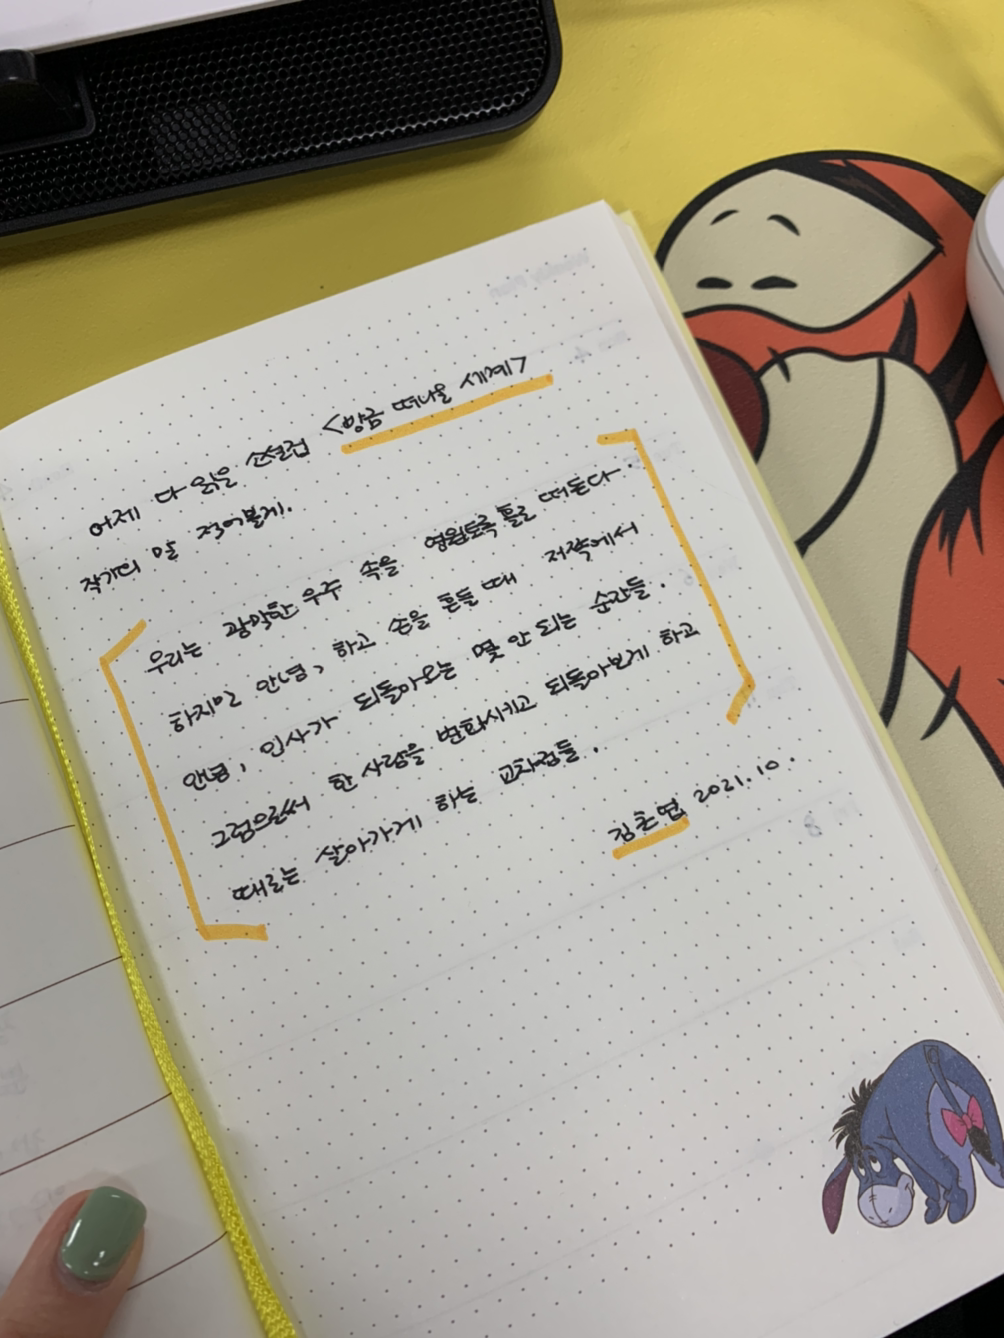 어제 다 읽은 소설집 <방금 떠나온 세계>
작가의 말 적어볼게.
우리는 광막한 우주 속을 영원토록 홀로 떠돈다.
하지만 안녕, 하고 손을 흔들 때 저쪽에서
안녕, 인사가 되돌아오는 몇 안 되는 순간들.
그럼으로써 한 사람을 변화시키고 되돌아보게 하고
때로는 살아가게 하는 교차점들.
김초엽 2021.10.